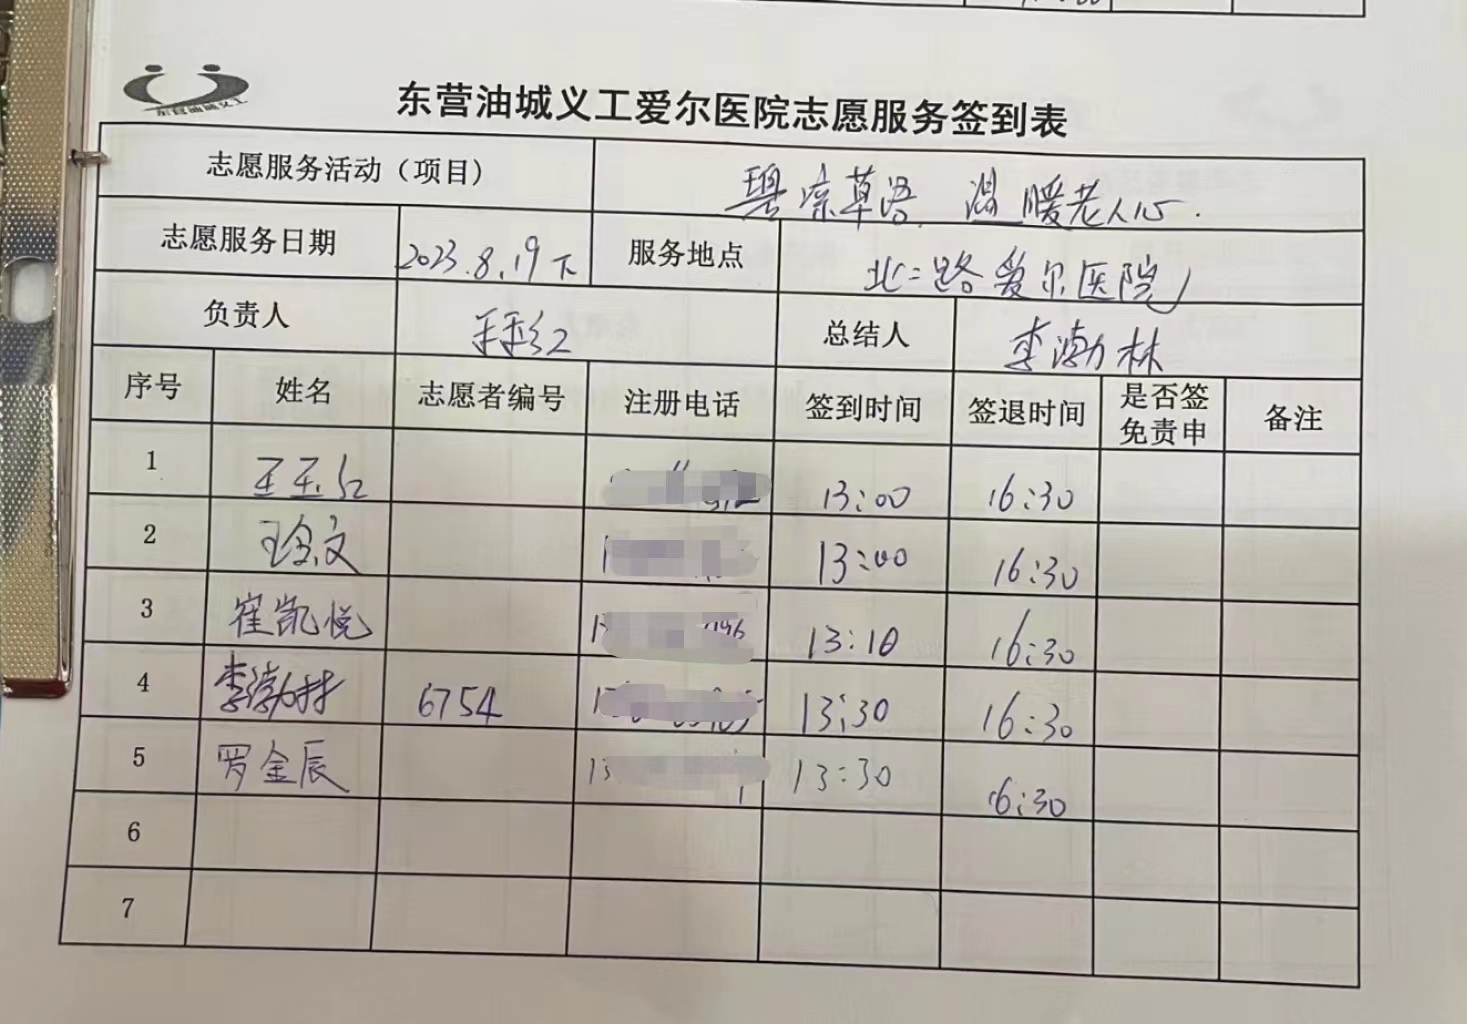 东营油城义工
东营油城义工爱尔医院志愿服务签到表
志愿服务活动（项目） 草语 温暖老人心.
志愿服务日期 2023.8.19下 服务地点 北二路爱尔医院
负责人 总结人 李渤林
序号 姓名 志愿者编号 注册电话 签到时间 签退时间 是否签免责申 备注
1 王玉红 13:00 16:30
2 文 1 13:00 16:30
3 崔凯悦 13:10 16:30
4 李渤林 6754 13:30 16:30
5 罗金辰 13 13:30 16:30
6
7